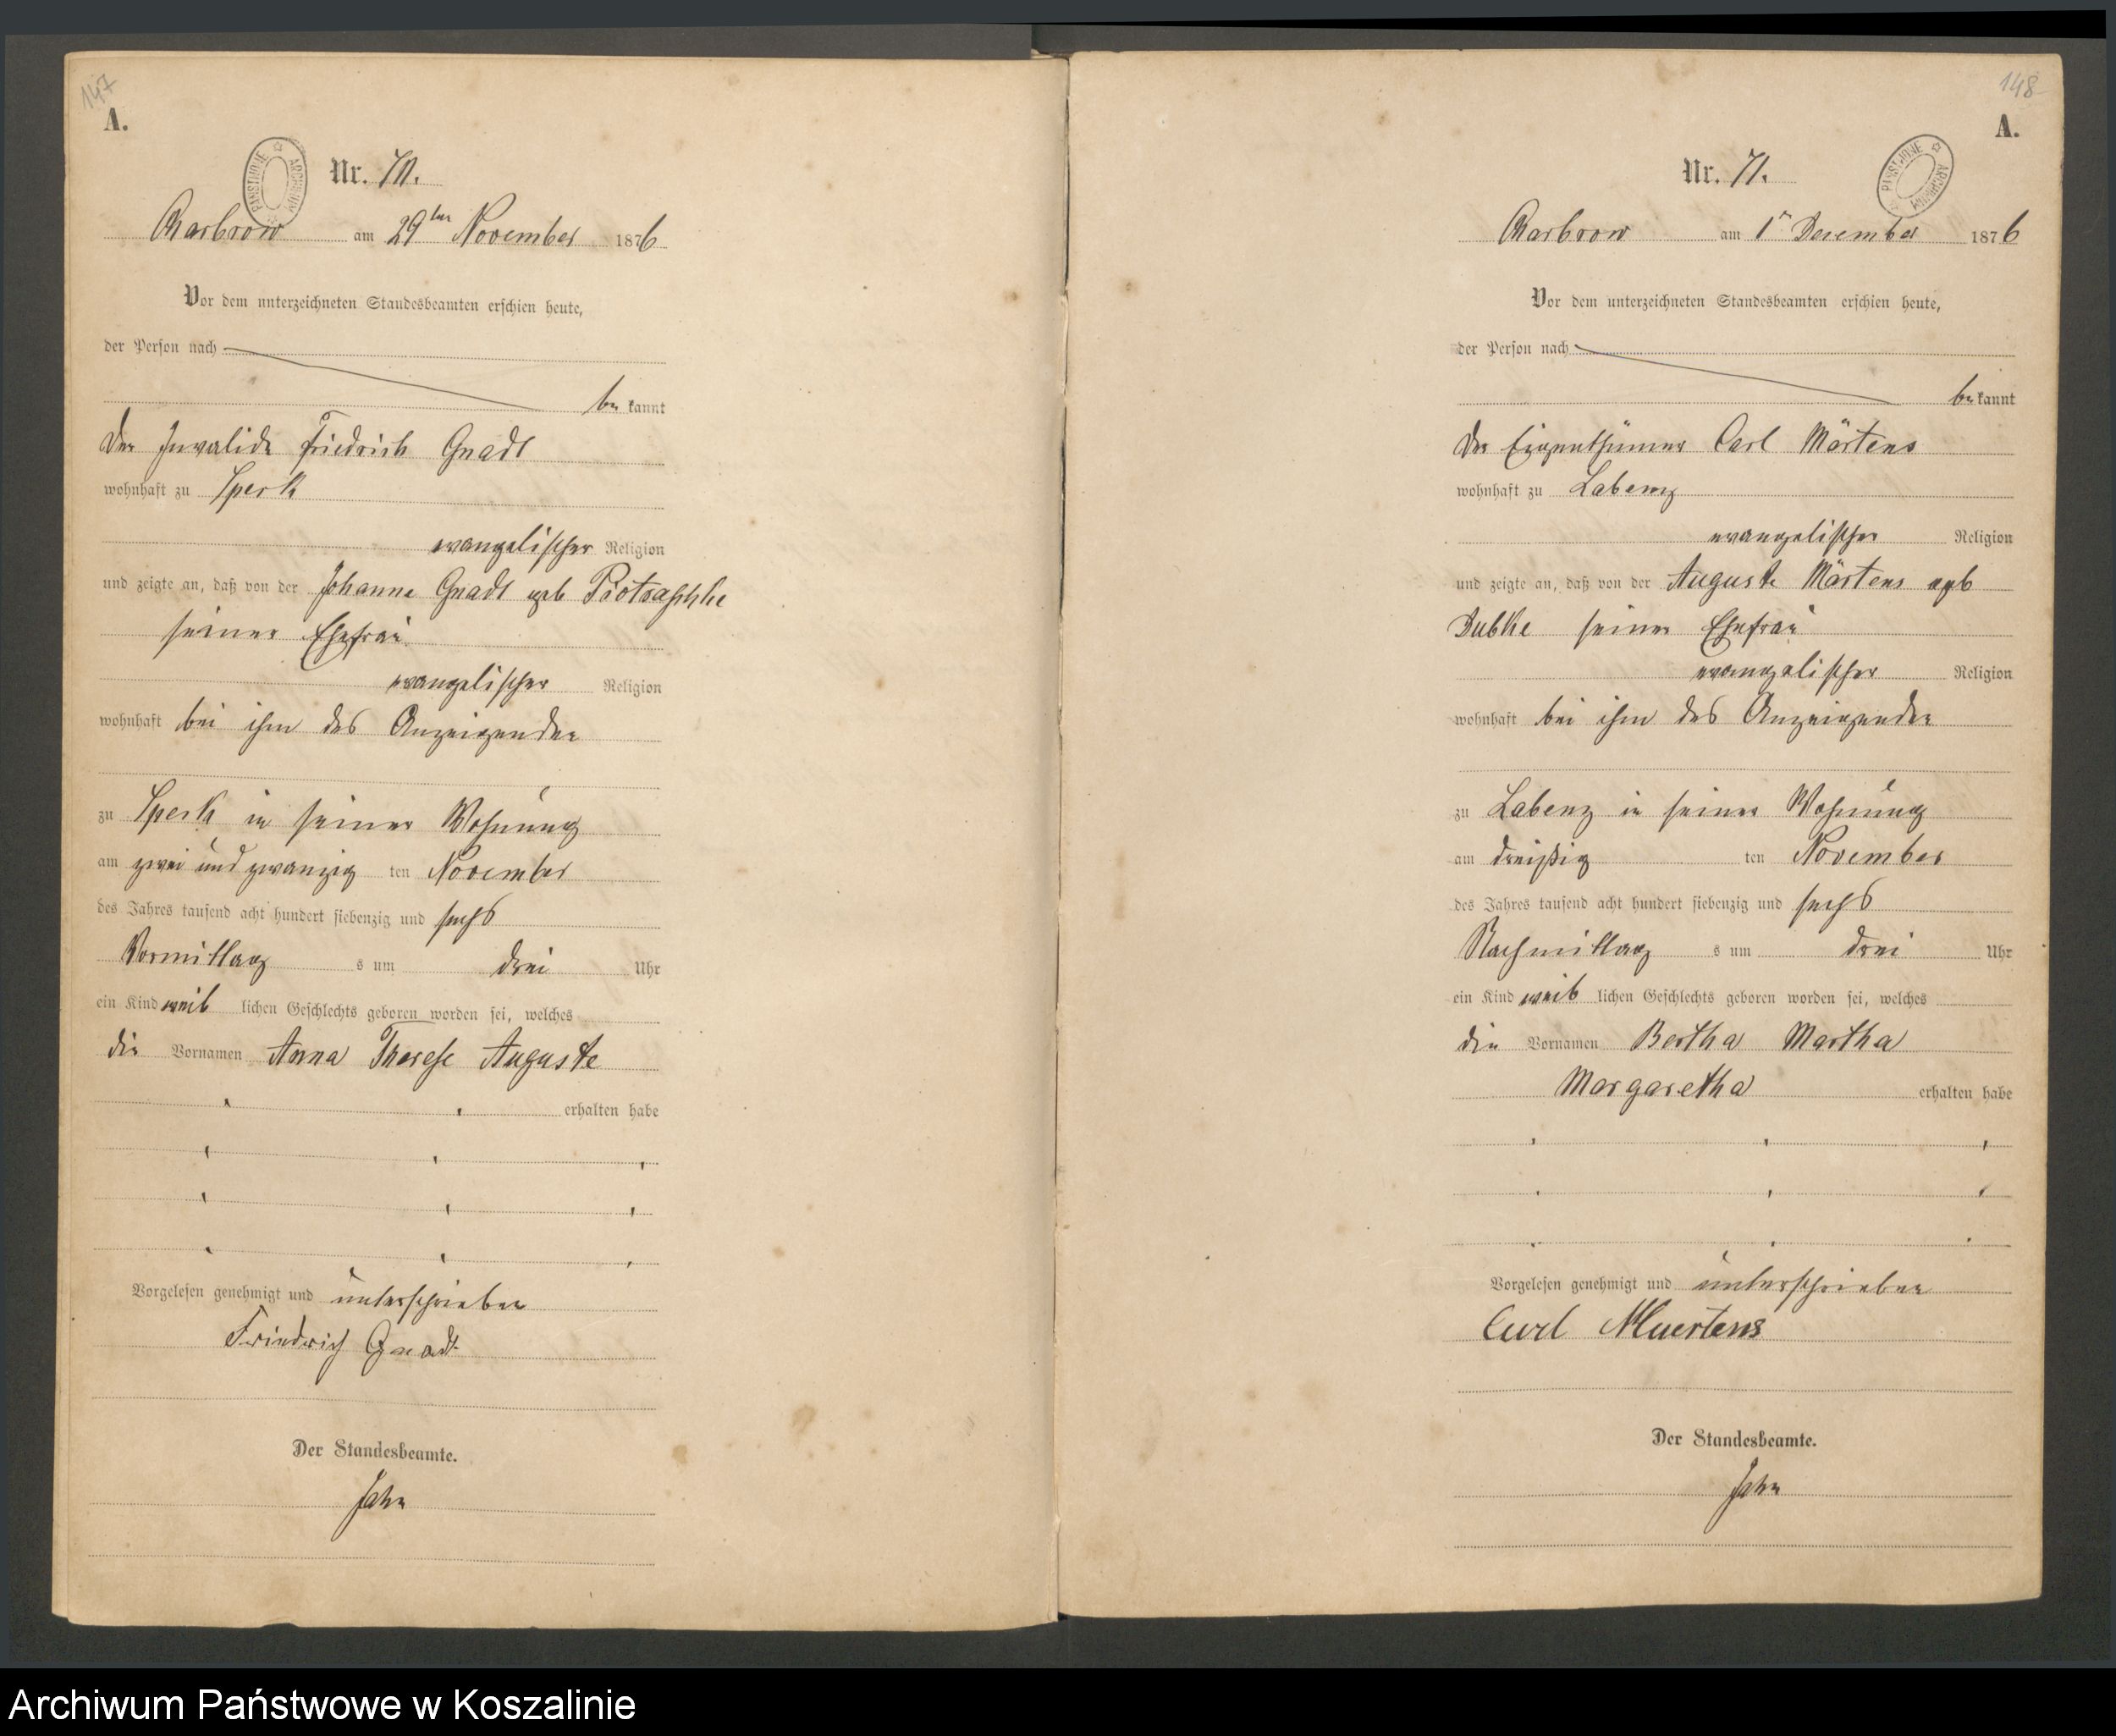 147
A.
PAŃSTWOWE ARCHIWUM
Nr. 70.
Charbrow am 29ten November 1876
Vor dem unterzeichneten Standesbeamten erschien heute,
der Person nach
be kannt
Der Invalide Friedrich Gnadt
wohnhaft zu Speck
evangelischer Religion
und zeigte an, daß von der Johanne Gnadt geb Piotraschke
seiner Ehefrau
evangelischer Religion
wohnhaft bei ihm des Anzeigenden
zu Speck in seiner Wohnung
am zwei und zwanzig ten November
des Jahres tausend acht hundert siebenzig und sechs
Vormittag s um drei Uhr
ein Kind weib lichen Geschlechts geboren worden sei, welches
die Vornamen Anna Therese Auguste
erhalten habe
Vorgelesen genehmigt und unterschrieben
Friedrich Gnadt
Der Standesbeamte.
Jahn
148
A.
PAŃSTWOWE ARCHIWUM
Nr. 71.
Charbrow am 1n December 1876
Vor dem unterzeichneten Standesbeamten erschien heute,
der Person nach
be kannt
Der Eigenthümer Carl Märtens
wohnhaft zu Labenz
evangelischer Religion
und zeigte an, daß von der Auguste Märtens geb
Dubke seiner Ehefrau
evangelischer Religion
wohnhaft bei ihm des Anzeigenden
zu Labenz in seiner Wohnung
am dreißig ten November
des Jahres tausend acht hundert siebenzig und sechs
Nachmittag s um drei Uhr
ein Kind weib lichen Geschlechts geboren worden sei, welches
die Vornamen Bertha Martha
Margaretha erhalten habe
Vorgelesen genehmigt und unterschrieben
Carl Maertens
Der Standesbeamte.
Jahn
Archiwum Państwowe w Koszalinie